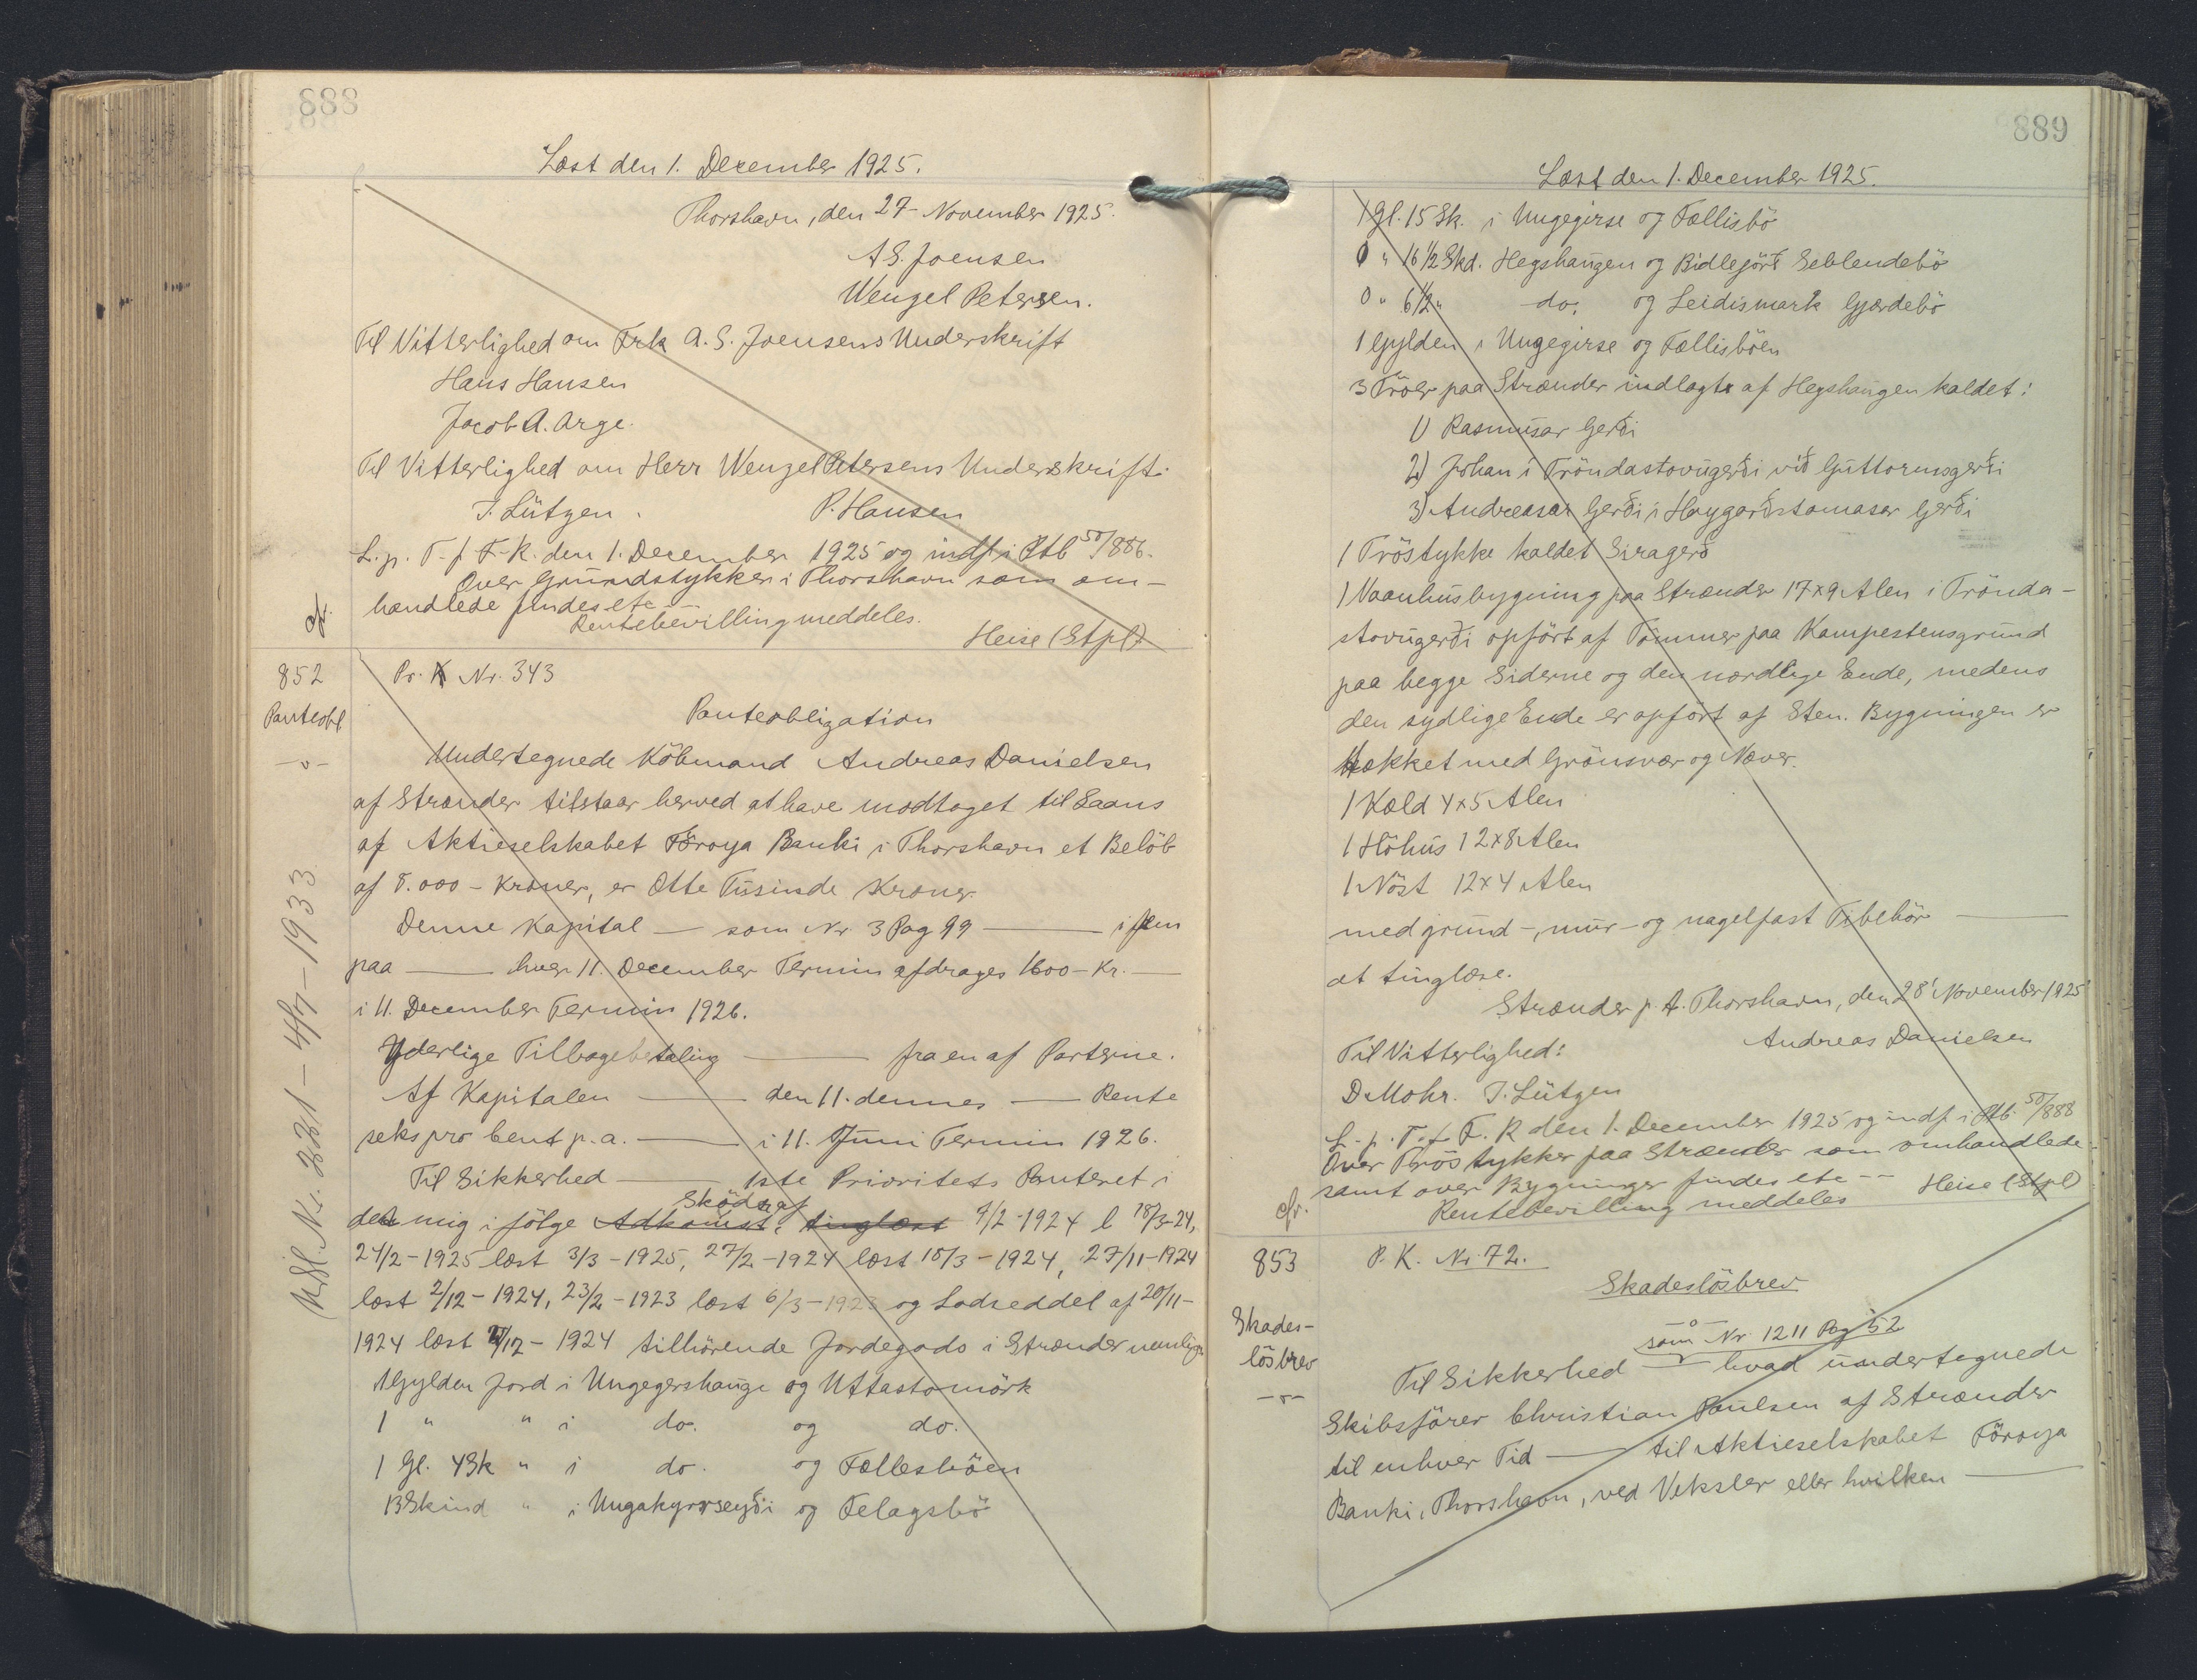 888
Læst den 1. December 1925.
Thorshavn, den 27 November 1925.
A S. Joensen
Wenzel Petersen.
Til Vitterlighed om Frk A. S. Joensens Underskrift
Hans Hansen
Jacob A. Arge.
Til Vitterlighed om Herr Wenzel Petersens Underskrift:
J. Lützen. P. Hansen
L. p. T. f F. R. den 1. December 1925 og indf i Ptb 50/886.
Over Grundstykker i Thorshavn som om-
handlede findes etc —
Rentebevilling meddeles.
cfr.
Heise (Stpl)
852
Panteobl
-o-
Pr. K Nr. 343
Panteobligation
Undertegnede Köbmand Andreas Danielsen
af Strænder tilstaar herved at have modtaget til Laans
af Aktieselskabet Föroya Banki i Thorshavn et Belöb
af 8.000 - Kroner, er Otte Tusinde Kroner.
Denne Kapital — som Nr 3 Pag 99 — i fem
paa — hver 11. December Termin afdrages 1600 - Kr. —
i 11. December Termin 1926.
Yderlige Tilbagebetaling — fra en af Parterne.
Af Kapitalen — den 11. dennes — Rente
seks pro Cent p. a. — i 11. Juni Termin 1926.
Til Sikkerhed — 1ste Prioritets Panteret i
Sköder af
den mig i fölge Adkomst, tinglæst 9/2-1924 l 18/3-24,
24/2-1925 læst 3/3-1925, 27/2-1924 læst 18/3-1924, 27/11-1924
læst 2/12-1924, 23/2-1923 læst 6/3-1923 og Lodseddel af 20/11-
1924 læst 2/12-1924 tilhörende Jordegods i Strænder nemlig:
1 Gylden Jord i Ungegershauge og Uttastomörk
1 " " i do. og do.
1 Gl. 4 Sk " i do. og Fællesböen
13 Skind " i Ungakyrrseyði og Felagsbö
Udsl. Nr. 221 - 4/7-1933
889
Læst den 1. December 1925.
1 Gl. 15 Sk. i Ungegirse og Fællisbö
0 " 16 1/2 Skd. Hegshaugen og Bidlegört Seblendebö
0 " 6 1/2 " do. og Leidismark Gjærdebö
1 Gylden i Ungegirse og Fællisböen
3 Tröer paa Strænder indlagte af Hegshaugen kaldet:
1) Rasmusar Gerði
2) Johan i Tröndastovugerði við Guttormsgerði
3) Andreasar Gerði i Haygardstomasar Gerði
1 Tröstykke kaldet Siragerð
1 Vaanhusbygning paa Strænder 17x9 Alen i Trönda-
stovugerði opfört af Tömmer paa Kampestensgrund
paa begge Siderne og den nordlige Ende, medens
den sydlige Ende er opfört af Sten. Bygningen er
tækket med Grönsvær og Næver.
1 Kæld 4x5 Alen
1 Höhus 12x8 Alen
1 Nöst 12x4 Alen
med grund-, mur- og nagelfast Tibehör —
at tinglæse.
Strænder p. A. Thorshavn, den 28' November 1925
Til Vitterlighed: Andreas Danielsen
D. Mohr. J. Lützen
L. p. T. f. F. R den 1. December 1925 og indf i Ptb. 50/888
Over Tröstykker paa Strænder som omhandlede
samt over Bygninger findes etc --
cfr.
Rentebevilling meddeles Heise (Stpl)
853
Skades-
lösbrev
-o-
P. K. Nr. 72.
Skadeslösbrev
-o-
som Nr. 1211 Pag 52
Til Sikkerhed — hvad undertegnede
Skibsförer Christian Poulsen af Strænder
til enhver Tid — til Aktieselskabet Föroya
Banki, Thorshavn, ved Veksler eller hvilken —